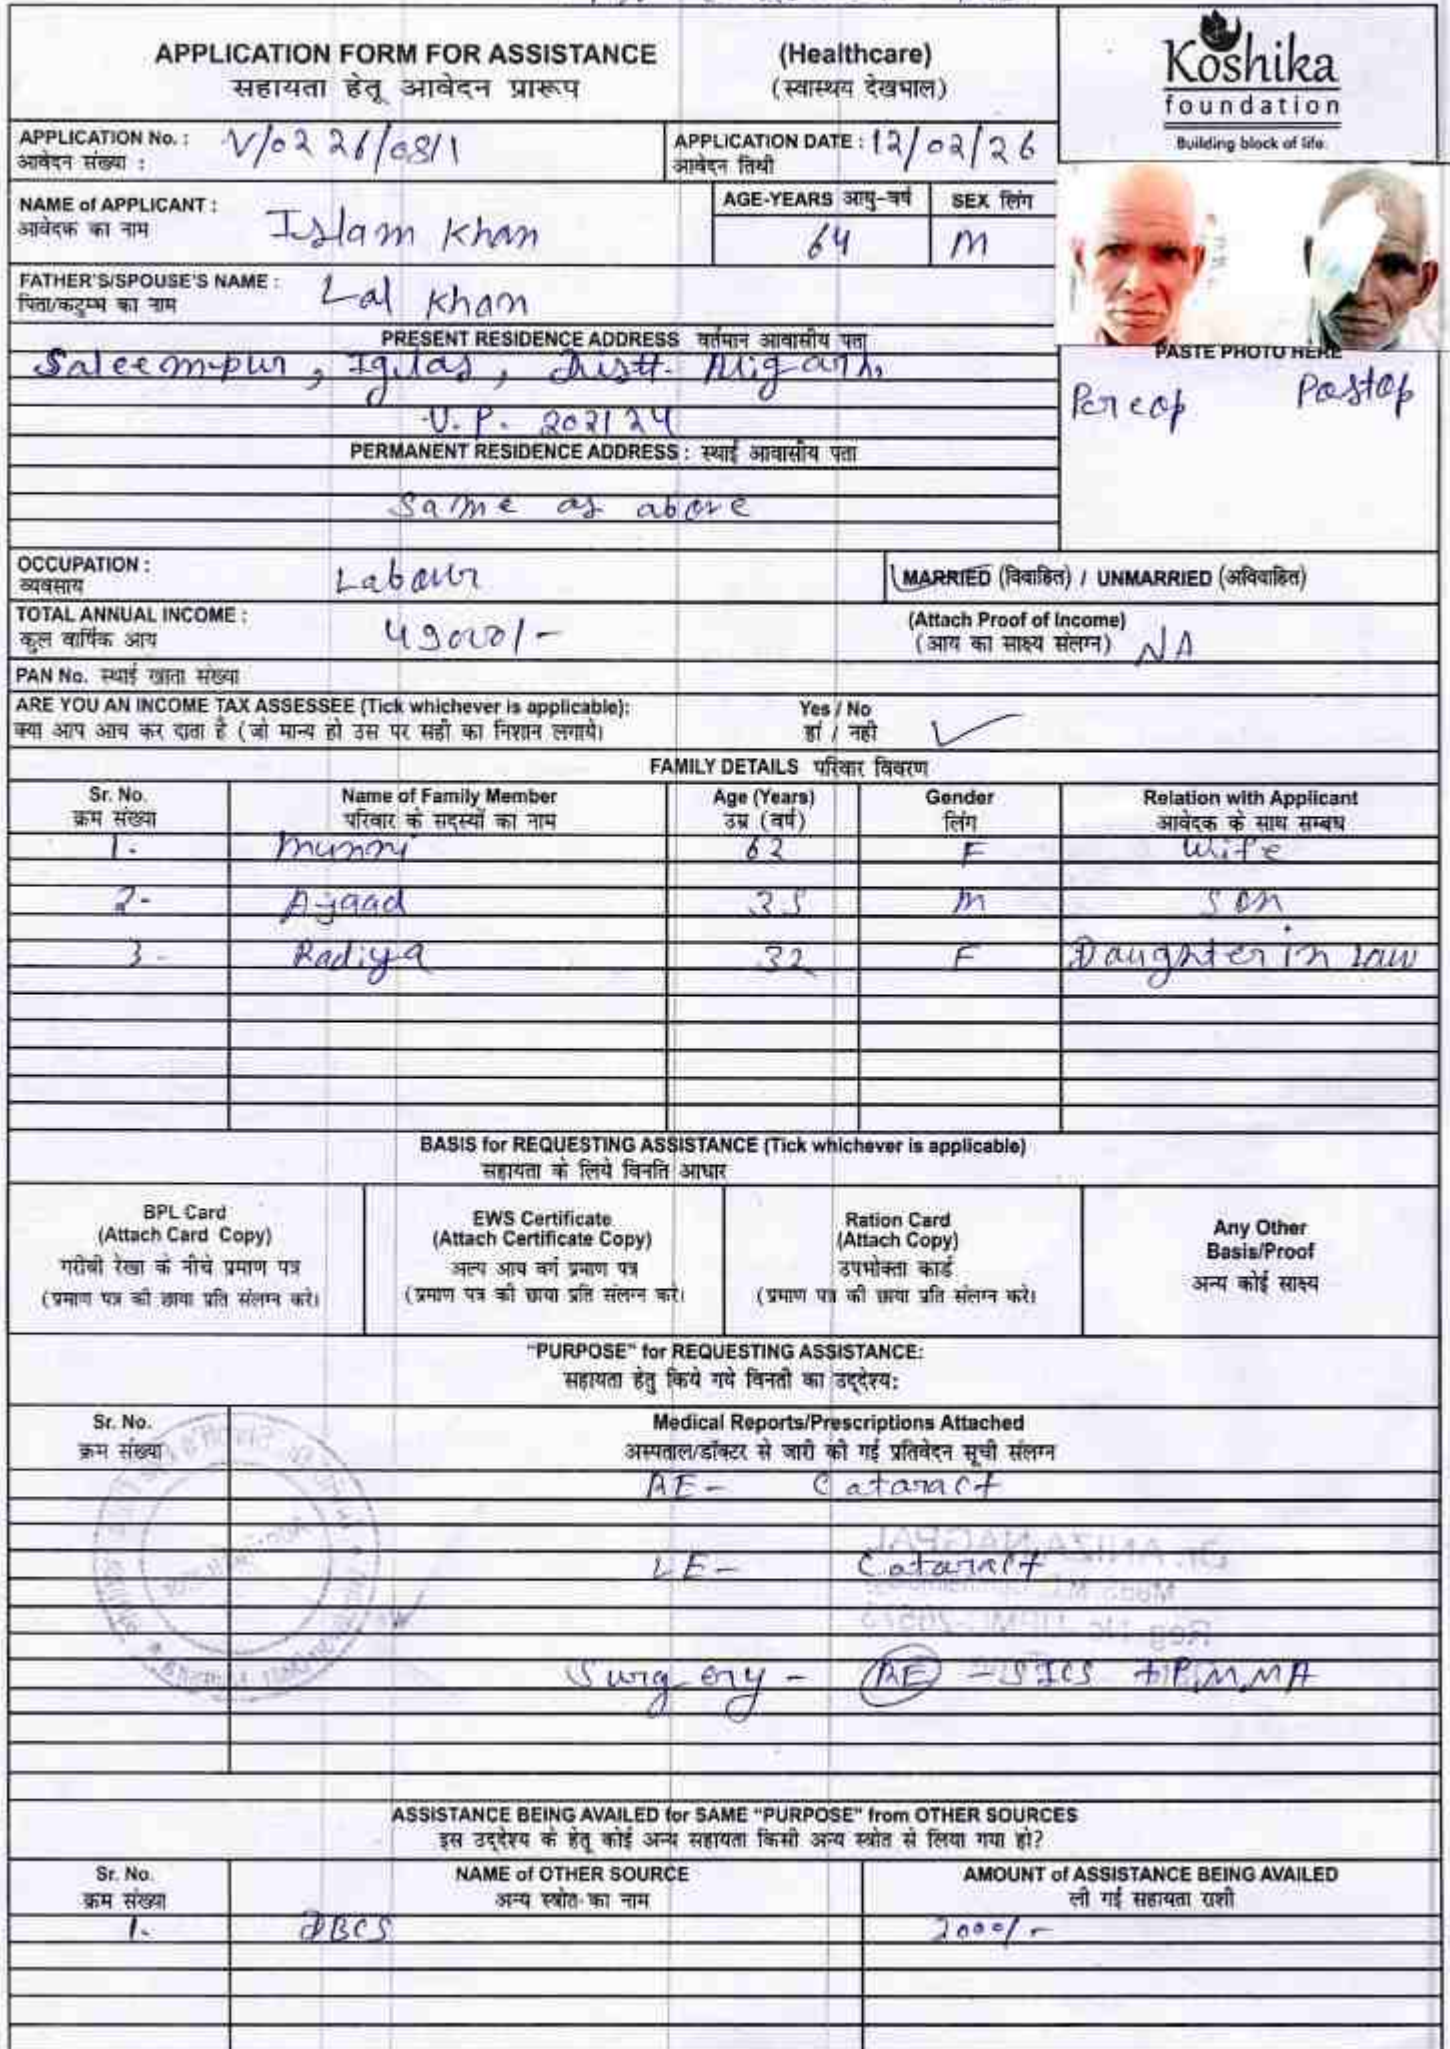 APPLICATION FORM FOR ASSISTANCE (Healthcare)
सहायता हेतू आवेदन प्रारूप (स्वास्थय देखभाल)
Koshika
foundation
Building block of life.
APPLICATION No. : V/0226/0811
आवेदन संख्या :
APPLICATION DATE : 12/02/26
आवेदन तिथी
NAME of APPLICANT : Islam Khan
आवेदक का नाम
AGE-YEARS आयु-वर्ष SEX लिंग
64 M
FATHER'S/SPOUSE'S NAME : Lal Khan
पिता/कटुम्भ का नाम
PRESENT RESIDENCE ADDRESS वर्तमान आवासीय पता
Saleempur, Iglas, Distt. Aligarh,
U.P. 202124
PERMANENT RESIDENCE ADDRESS : स्थाई आवासीय पता
Same as above
PASTE PHOTO HERE
Pereop Postop
OCCUPATION : Labour
व्यवसाय
MARRIED (विवाहित) / UNMARRIED (अविवाहित)
TOTAL ANNUAL INCOME : 49000/-
कुल वार्षिक आय
(Attach Proof of Income)
(आय का साक्ष्य संलग्न) NA
PAN No. स्थाई खाता संख्या
ARE YOU AN INCOME TAX ASSESSEE (Tick whichever is applicable): Yes / No
क्या आप आय कर दाता है (जो मान्य हो उस पर सही का निशान लगाये। हां / नही
FAMILY DETAILS परिवार विवरण
Sr. No. Name of Family Member Age (Years) Gender Relation with Applicant
क्रम संख्या परिवार के सदस्यों का नाम उम्र (वर्ष) लिंग आवेदक के साथ सम्बध
1. Munni 62 F Wife
2- Ajaad 35 M Son
3- Radiya 32 F Daughter in Law
BASIS for REQUESTING ASSISTANCE (Tick whichever is applicable)
सहायता के लिये विनति आधार
BPL Card
(Attach Card Copy)
गरीबी रेखा के नीचे प्रमाण पत्र
(प्रमाण पत्र की छाया प्रति संलग्न करे।
EWS Certificate
(Attach Certificate Copy)
अल्प आय वर्ग प्रमाण पत्र
(प्रमाण पत्र की छाया प्रति संलग्न करे।
Ration Card
(Attach Copy)
उपभोक्ता कार्ड
(प्रमाण पत्र की छाया प्रति संलग्न करे।
Any Other
Basis/Proof
अन्य कोई साक्ष्य
"PURPOSE" for REQUESTING ASSISTANCE:
सहायता हेतु किये गये विनती का उद्देश्य:
Sr. No. Medical Reports/Prescriptions Attached
क्रम संख्या अस्पताल/डॉक्टर से जारी की गई प्रतिवेदन सूची संलग्न
RE- Cataract
LE- Cataract
Surgery - RE - SICS + PMMA
ASSISTANCE BEING AVAILED for SAME "PURPOSE" from OTHER SOURCES
इस उद्देश्य के हेतू कोई अन्य सहायता किसी अन्य स्त्रोत से लिया गया हो?
Sr. No. NAME of OTHER SOURCE AMOUNT of ASSISTANCE BEING AVAILED
क्रम संख्या अन्य स्त्रोत का नाम ली गई सहायता राशी
1. DBCS 2000/-